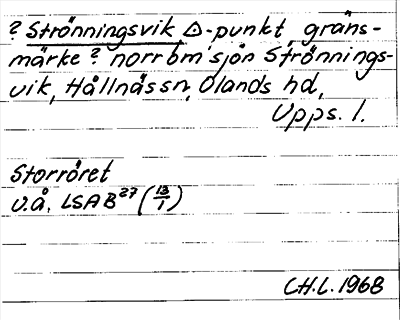 ? Strönningsvik △-punkt, gräns-
märke? norr om sjön Strönnings-
vik, Hållnäs sn, Olands hd,
Upps. l.
Storröret
u.å. LSAB²⁷ (13/1)
C.H.L. 1968